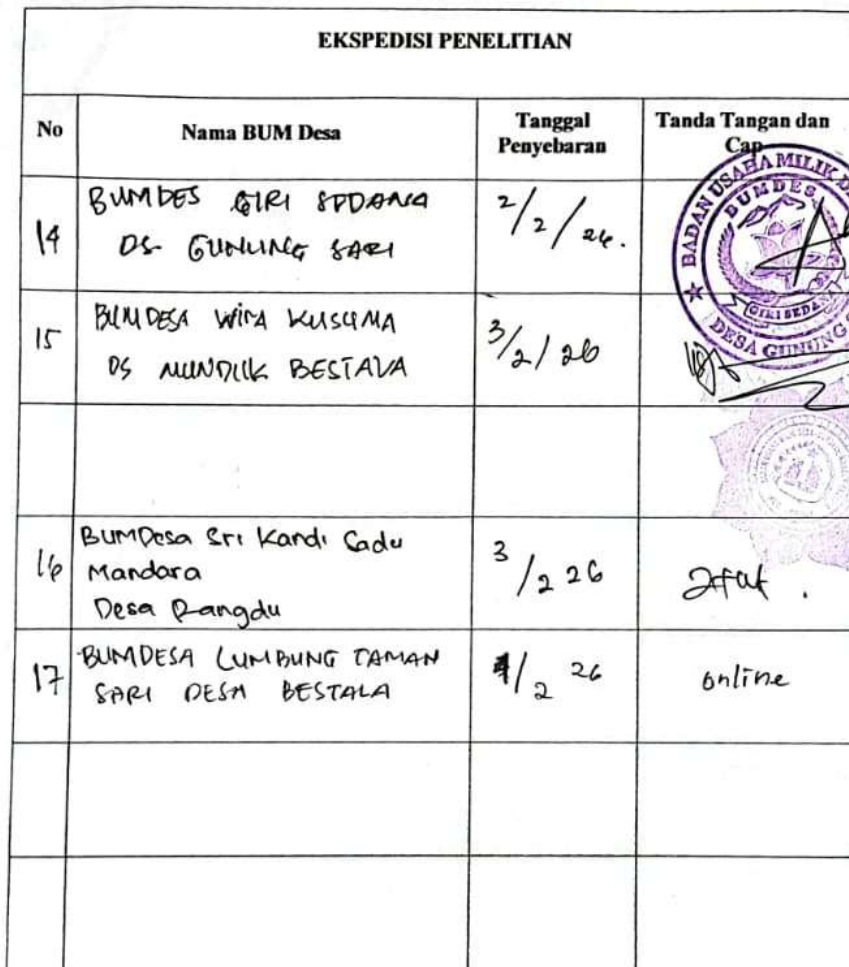 EKSPEDISI PENELITIAN
No Nama BUM Desa Tanggal Penyebaran Tanda Tangan dan Cap
14 BUMDES GIRI SEDANA 2/2/26.
DS GUNUNG SARI
BADAN USAHA MILIK D
BUMDES
GIRI SEDANA
DESA GUNUNG S
15 BUMDESA WIRA KUSUMA 3/2/26
DS MUNDUK BESTALA
16 BUMDesa Sri Kandi Sadu 3/2 26
Mandara
Desa Rangdu
17 BUMDESA LUMBUNG TAMAN 4/2 26 online
SARI DESA BESTALA